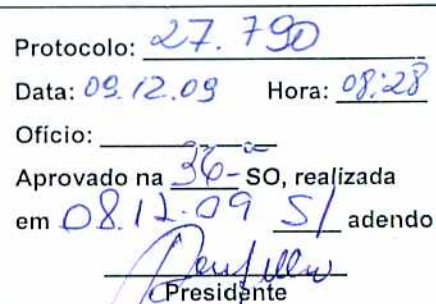 Protocolo: 27.790
Data: 09.12.09 Hora: 08:28
Ofício:
Aprovado na 36ª SO, realizada
em 08.12.09 S/ adendo
Presidente